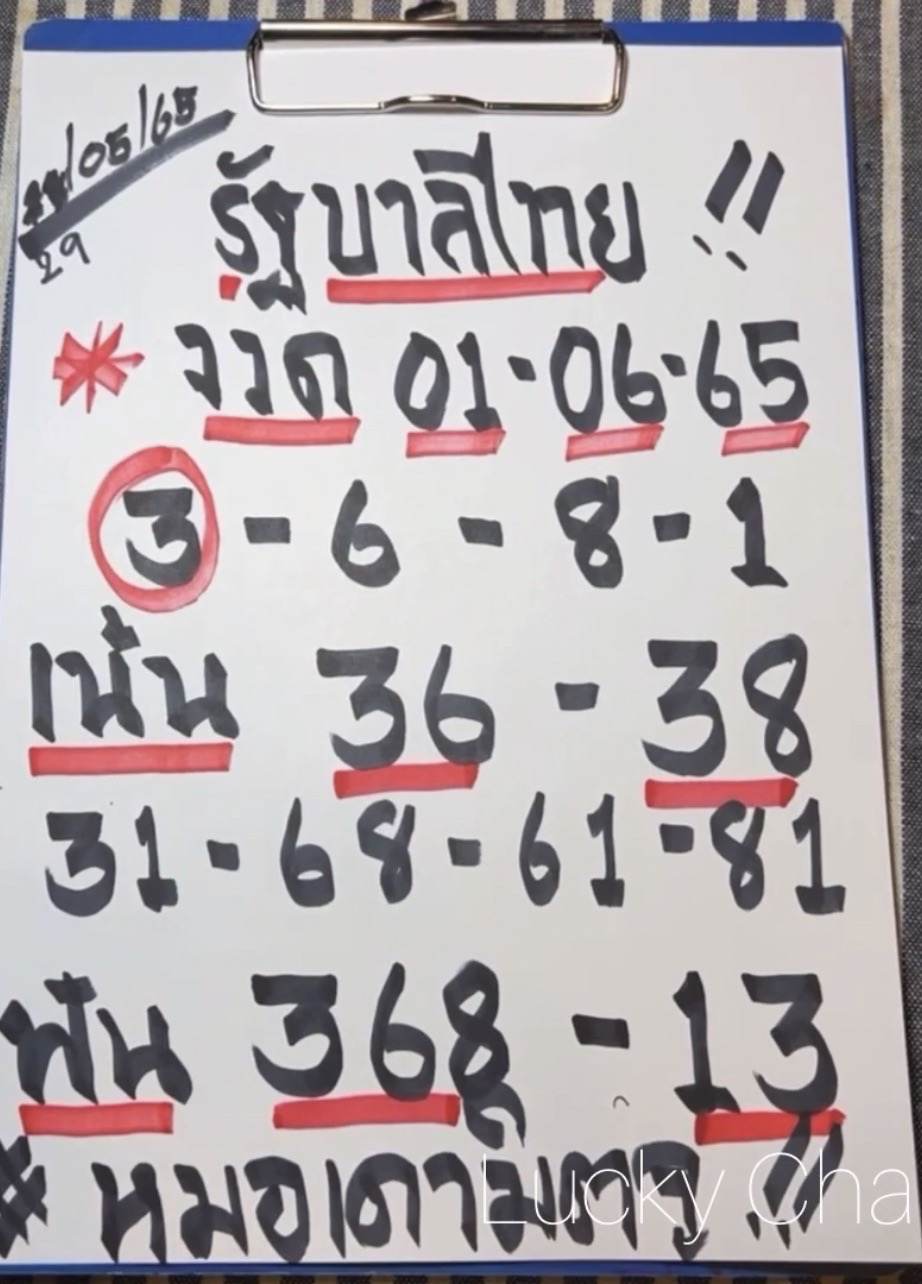 /05/65
29
รัฐบาลไทย !!
* งวด 01-06-65
3 - 6 - 8 - 1
เน้น 36 - 38
31 - 68 - 61 - 81
ฟัน 368 - 13
# หมอเดา !!
Lucky Cha